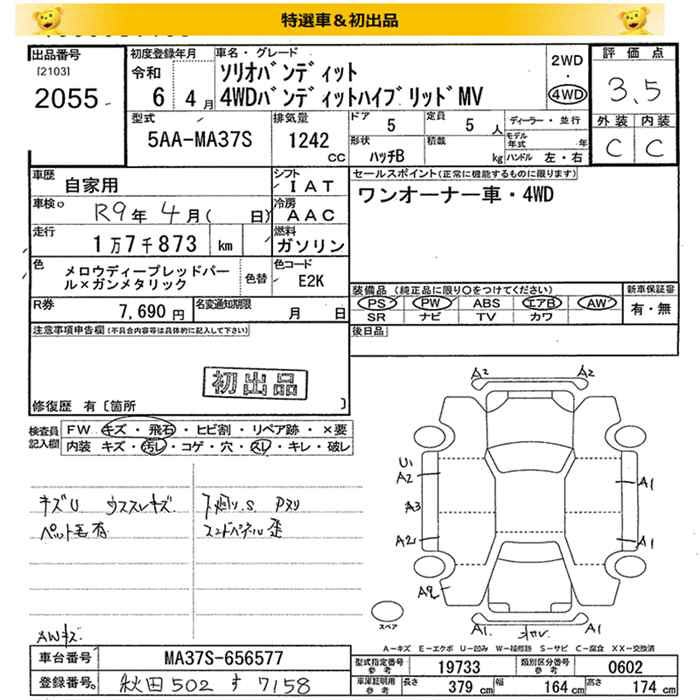 特選車＆初出品
出品番号
[2103]
2055
初度登録年月
令和
6年 4月
車名・グレード
ソリオバンディット
4WDバンディットハイブリッドMV
2WD
・
4WD
評価点
3.5
外装 内装
C C
型式
5AA-MA37S
排気量
1242
cc
ドア 5
定員 5人
形状
ハッチB
積載
kg
ディーラー・並行
モデル年式 年
ハンドル 左・右
車歴
自家用
シフト
IAT
車検
R9年4月( 日)
冷房
AAC
走行
1万7千873 km
燃料
ガソリン
色
メロウディープレッドパー
ル×ガンメタリック
色替
色コード
E2K
R券
7,690円
名変通知期限
月 日
セールスポイント(正常に機能するものに限ります)
ワンオーナー車・4WD
装備品 (純正品に限り○をつけてください)
PS PW ABS エアB AW
SR ナビ TV カワ
新車保証書
有・無
後日品
注意事項申告欄(不具合内容等は具体的に記入して下さい)
初出品
修復歴 有〔箇所 〕
検査員
記入欄
FW キズ・飛石・ヒビ割・リペア跡・×要
内装 キズ・汚レ・コゲ・穴・スレ・キレ・破レ
キズU ウススレキズ
ペット毛有
下廻り.S Pヌリ
AWキズ
A2 A2
U1
A2
A3
A2
A1
A1
A1
A1
スペア
A-キズ E-エクボ U-凹み W-補修跡 S-サビ C-腐食 XX-交換済
車台番号
MA37S-656577
登録番号
秋田502 す7158
型式指定番号
参考
19733
類別区分番号
参考
0602
車庫証明用
参考
長さ 379 cm
幅 164 cm
高さ 174 cm